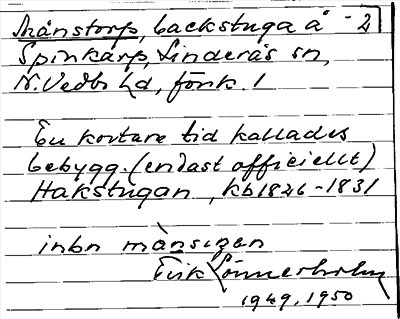 Månstorp, backstuga å - 2
Spinkarp, Linderås sn,
N. Vedbo hd, Jönk. l
En kortare tid kallades
bebygg. (endast officiellt)
Hakstugan, kb 1826-1831
inbn månsizen
Erik Lönnerholm
1949, 1950